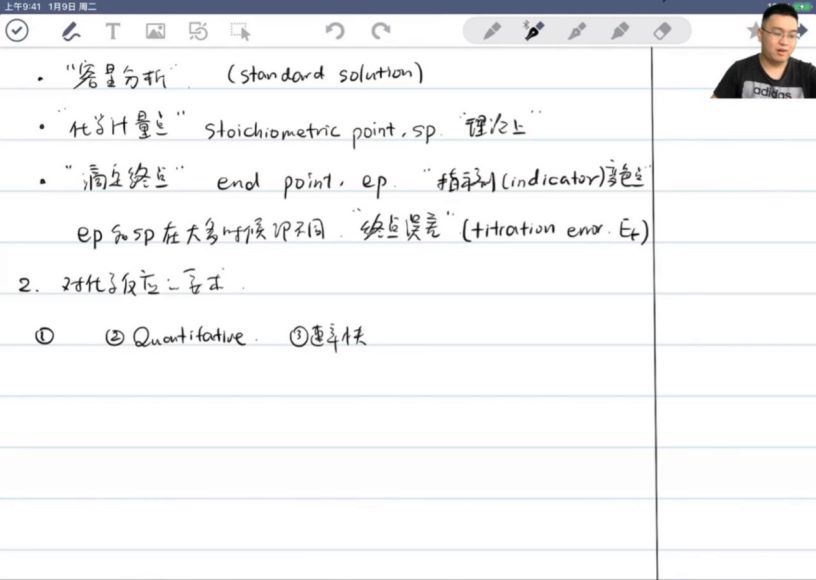 上午9:41 1月9日 周二
T
adidas
· "容量分析" (standard solution)
· "化学计量点" stoichiometric point, sp. "理论上"
· "滴定终点" end point, ep. "指示剂(indicator)变色点"
ep和sp在大多时候即不同. "终点误差" (titration error. Et)
2. 对化学反应之要求.
① ② Quantitative. ③速率快